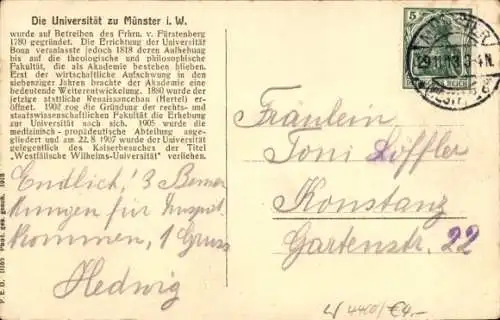 Die Universität zu Münster i. W.
wurde auf Betreiben des Frhrn. v. Fürstenberg
1780 gegründet. Die Errichtung der Universität
Bonn veranlasste jedoch 1818 deren Aufhebung
bis auf die theologische und philosophische
Fakultät, die als Akademie bestehen blieben.
Erst der wirtschaftliche Aufschwung in den
siebenziger Jahren brachte der Akademie eine
bedeutende Weiterentwickelung. 1880 wurde der
jetzige stattliche Renaissancebau (Hertel) er-
öffnet. 1902 zog die Gründung der rechts- und
staatswissenschaftlichen Fakultät die Erhebung
zur Universität nach sich. 1905 wurde die
medizinisch-propädeutische Abteilung ange-
gliedert und am 22.8 1907 wurde der Universität
gelegentlich des Kaiserbesuches der Titel
"Westfälische Wilhelms-Universität" verliehen.
Endlich! 3 Bemer
kungen für
kommen, 1 Gruss
Hedwig
5
Fräulein
Toni Löffler
Konstanz
Gartenstr. 22
4400/€4,-